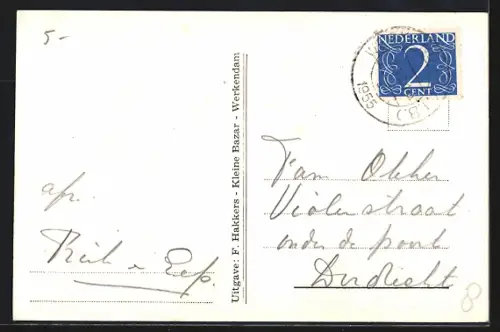 5-
NEDERLAND
2
CENT
1955
Uitgave: F. Hakkers - Kleine Bazar - Werkendam
afz.
Fam Okker
Violenstraat
onder de poort
Dordrecht
8